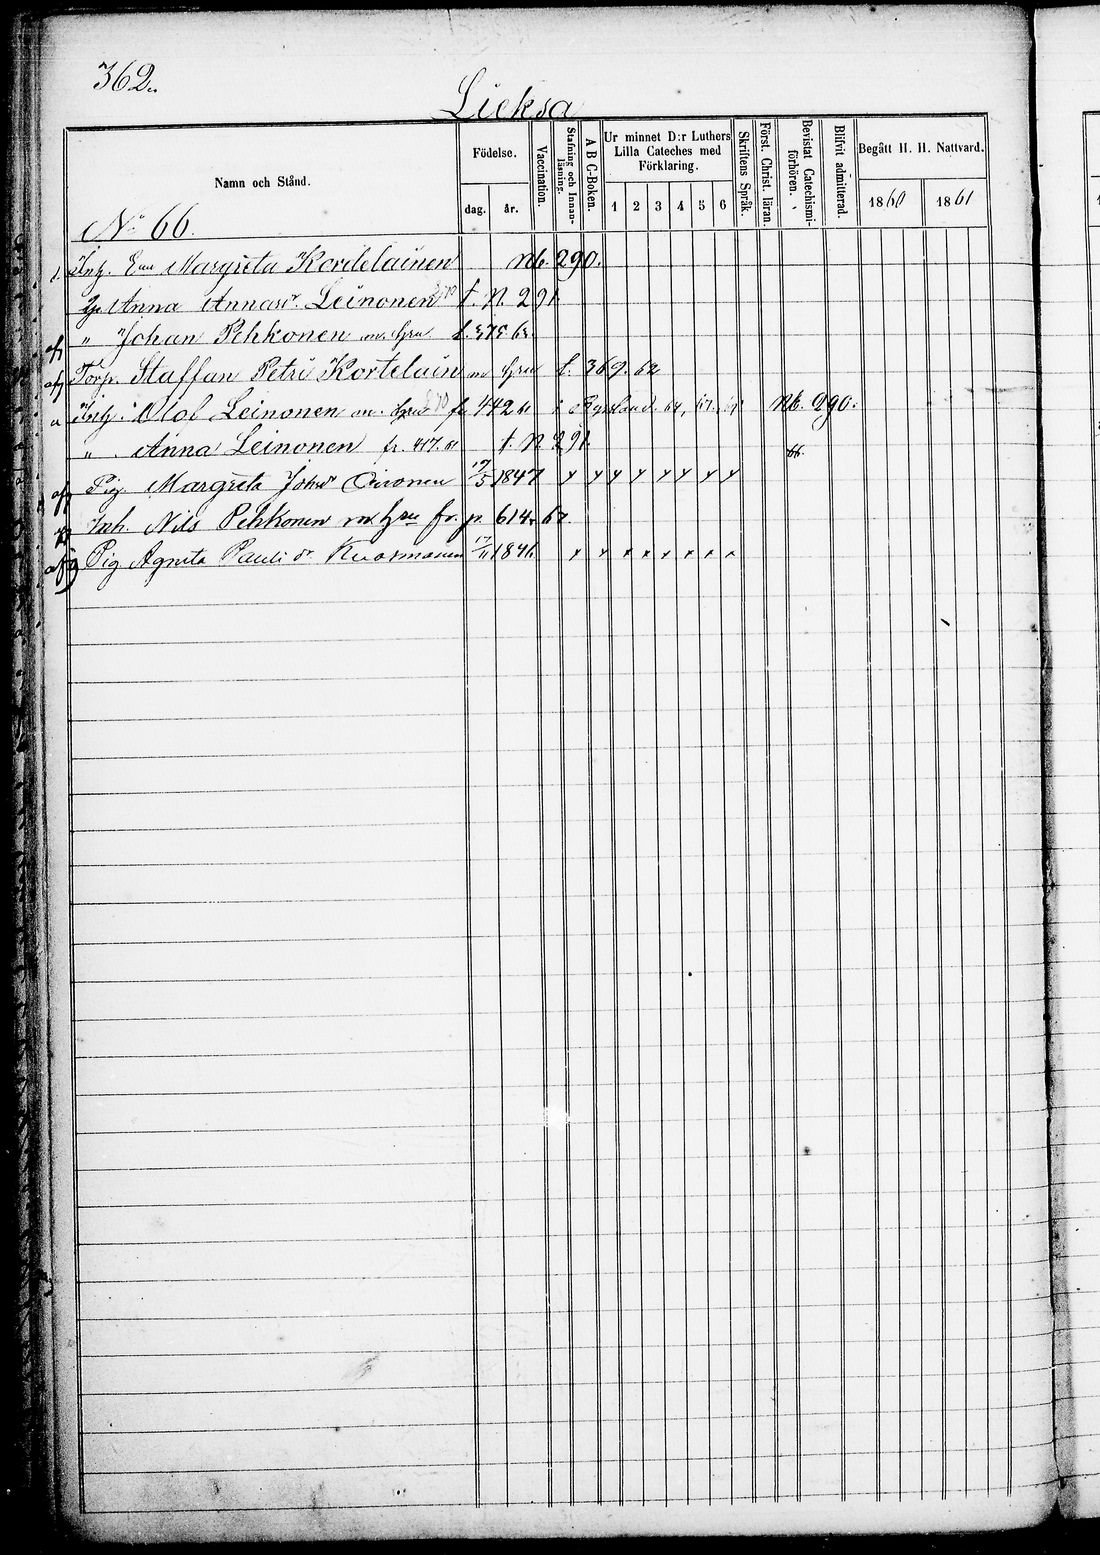 362.
Lieksa
Namn och Stånd.
Födelse.
dag. år.
Vaccination.
Stafning och Innanläsning.
A B C-Boken.
Ur minnet D:r Luthers Lilla Cateches med Förklaring.
1 2 3 4 5 6
Skriftens Språk.
Först. Christ. läran.
Bevistat Catechismiförhören.
Blifvit admitterad.
Begått H. H. Nattvard.
1860 1861
No 66.
Inh. Enn Margreta Kordelainen Nb. 290.
Anna Annasdr. Leinonen t. N. 291
" Johan Pehkonen m. hru t. 375. 63.
Torp. Staffan Petri Kortelain m hru t. 369. 62
Inh. Olof Leinonen m. hru fr 442 Ryssland. 64, Nb. 290.
" Anna Leinonen fr. 417. 61 t. N 291
Pig Margreta Johsdr Oinonen 17/5 1847 x x x x x x x x
Inh. Nils Pehkonen m hru fr. p. 614.
Pig Agneta Pauli dr Kuosmanen 17/11 1841 x x x x x x x x